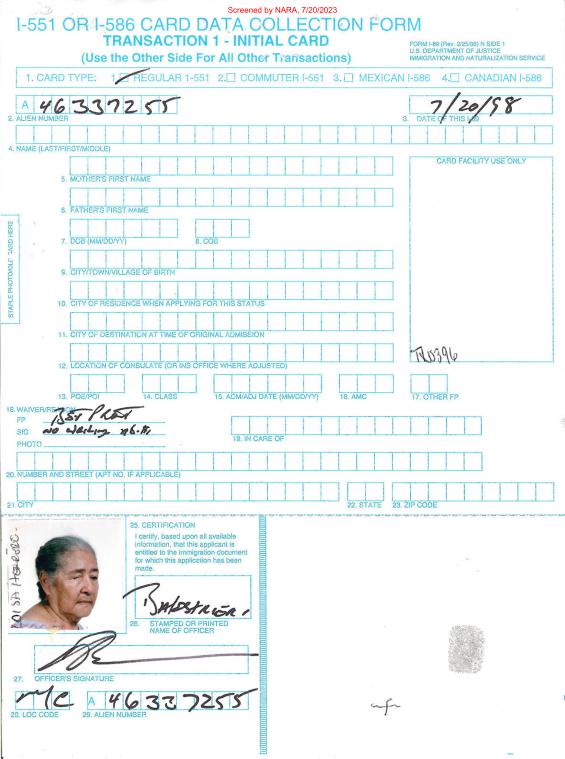 Screened by NARA, 7/20/2023
I-551 OR I-586 CARD DATA COLLECTION FORM
TRANSACTION 1 - INITIAL CARD
(Use the Other Side For All Other Transactions)
FORM I-89 (Rev. 2/25/88) N SIDE 1
U.S. DEPARTMENT OF JUSTICE
IMMIGRATION AND NATURALIZATION SERVICE
1. CARD TYPE: 1. REGULAR 1-551 2. COMMUTER I-551 3. MEXICAN I-586 4. CANADIAN I-586
A 46337255
7/20/98
2. ALIEN NUMBER
3. DATE OF THIS I-89
4. NAME (LAST/FIRST/MIDDLE)
CARD FACILITY USE ONLY
5. MOTHER'S FIRST NAME
6. FATHER'S FIRST NAME
7. DOB (MM/DD/YY) 8. COB
STAPLE PHOTO/OLD CARD HERE
9. CITY/TOWN/VILLAGE OF BIRTH
10. CITY OF RESIDENCE WHEN APPLYING FOR THIS STATUS
11. CITY OF DESTINATION AT TIME OF ORIGINAL ADMISSION
12. LOCATION OF CONSULATE (OR INS OFFICE WHERE ADJUSTED)
13. POE/POI 14. CLASS 15. ADM/ADJ DATE (MM/DD/YY) 16. AMC 17. OTHER FP
18. WAIVER/REASON
FP Best Print
SIG
PHOTO
19. IN CARE OF
20. NUMBER AND STREET (APT NO. IF APPLICABLE)
21. CITY 22. STATE 23. ZIP CODE
25. CERTIFICATION
I certify, based upon all available
information, that this applicant is
entitled to the immigration document
for which this application has been
made.
26. STAMPED OR PRINTED
NAME OF OFFICER
27. OFFICER'S SIGNATURE
A 46337255
28. LOC CODE 29. ALIEN NUMBER